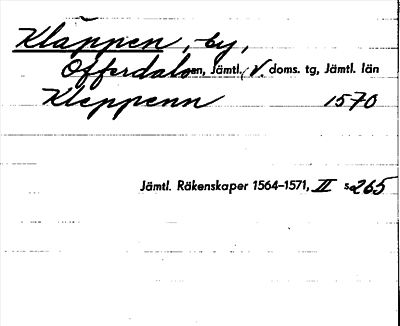 Kläppen, by,
Offerdals sn, Jämtl. V. doms. tg, Jämtl. län
Kleppenn 1570
Jämtl. Räkenskaper 1564–1571, II s 265